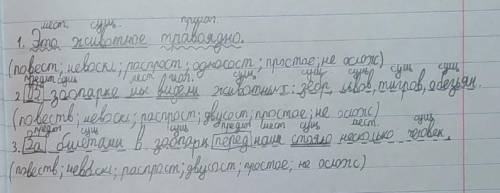 мест. сущ. прилаг.
1. Это животное травоядно.
(повест; невоскл; распрост; односост; простое; не ослож)
предлог сущ. мест. гл. сущ. сущ. сущ. сущ. сущ.
2. В зоопарке мы видели животных: зебр, львов, тигров, обезьян.
(повеств; невоскл; распрост; двусост; простое; не ослож)
предлог сущ. сущ. предлог мест. сущ. мест. сущ.
3. За билетами в зоопарк перед нами стояло несколько человек.
(повеств; невоскл; распрост; двусост; простое; не ослож)